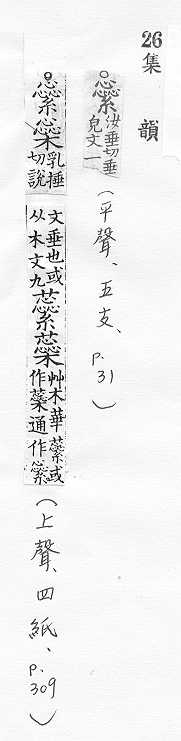 26 集韻
○繠汝垂切垂皃文一（平聲、五支、p.31）
○繠橤乳捶切說文垂也或从木文九蘃蘂艸木華蘃或作蕋通作繠（上聲、四紙、p.309）